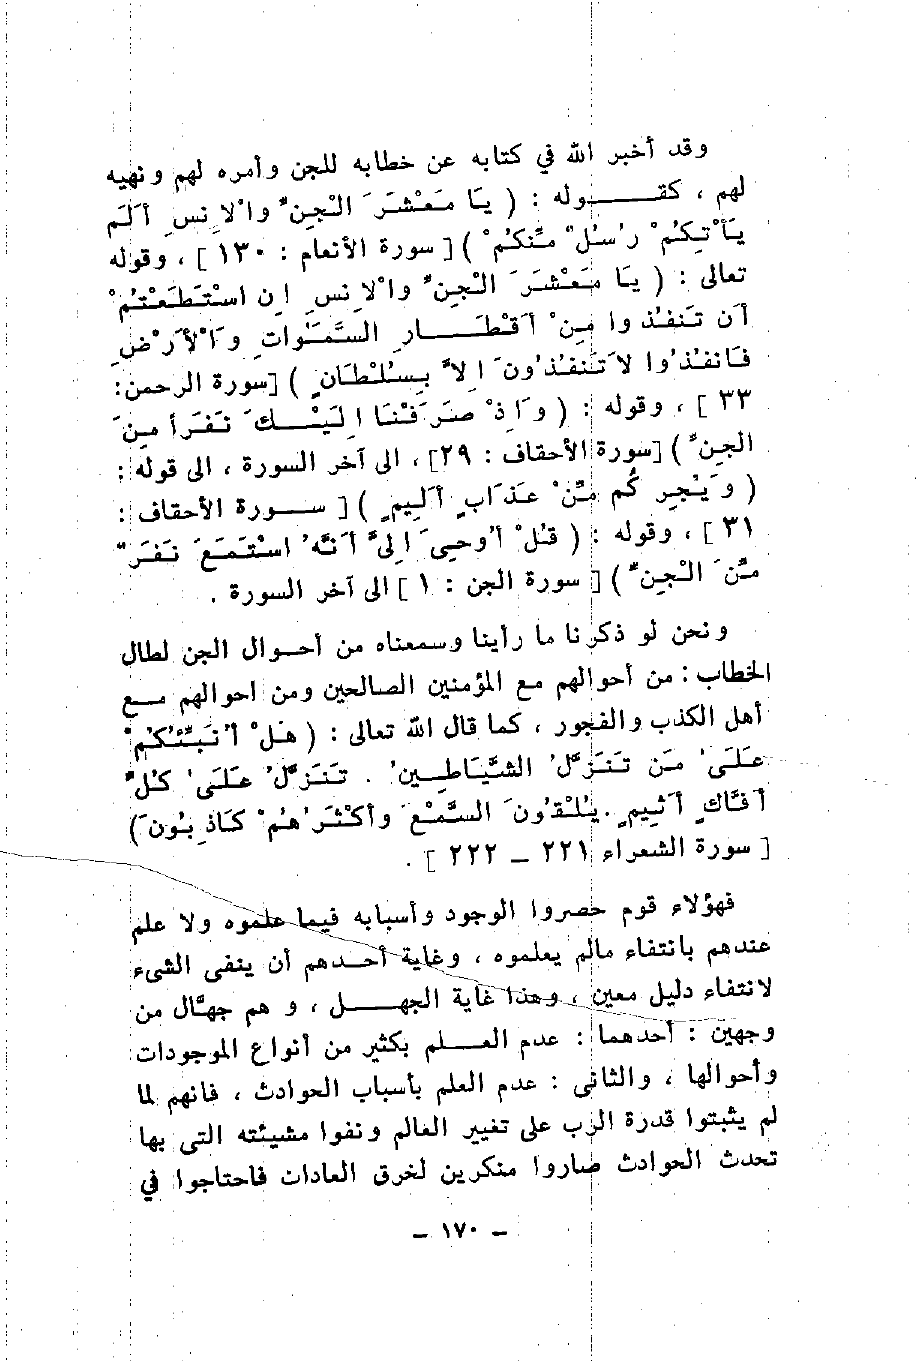 وقد أخبر الله في كتابه عن خطابه للجن وأمره لهم ونهيه
لهم ، كقــــــوله : ( يَا مَعْشَرَ الْجِنِّ وَالْإِنسِ أَلَمْ
يَأْتِكُمْ رُسُلٌ مِّنكُمْ ) [ سورة الأنعام : ١٣٠ ] ، وقوله
تعالى : ( يَا مَعْشَرَ الْجِنِّ وَالْإِنسِ إِنِ اسْتَطَعْتُمْ
أَن تَنفُذُوا مِنْ أَقْطَـــــارِ السَّمَٰوَاتِ وَالْأَرْضِ
فَانفُذُوا لَا تَنفُذُونَ إِلَّا بِسُلْطَانٍ ) [سورة الرحمن:
٣٣ ] ، وقوله : ( وَإِذْ صَرَفْنَا إِلَيْـــكَ نَفَرًا مِنَ
الْجِنِّ ) [سورة الأحقاف : ٢٩] ، الى آخر السورة ، الى قوله :
( وَيُجِرْكُم مِّنْ عَذَابٍ أَلِيمٍ ) [ ســـورة الأحقاف :
٣١ ] ، وقوله : ( قُلْ أُوحِيَ إِلَيَّ أَنَّهُ اسْتَمَعَ نَفَرٌ
مِّنَ الْجِنِّ ) [ سورة الجن : ١ ] الى آخر السورة .
ونحن لو ذكرنا ما رأينا وسمعناه من أحــوال الجن لطال
الخطاب : من أحوالهم مع المؤمنين الصالحين ومن احوالهم مــع
أهل الكذب والفجور ، كما قال الله تعالى : ( هَلْ أُنَبِّئُكُمْ
عَلَىٰ مَن تَنَزَّلُ الشَّيَاطِــينُ . تَنَزَّلُ عَلَىٰ كُلِّ
أَفَّاكٍ أَثِيمٍ . يُلْقُونَ السَّمْعَ وَأَكْثَرُهُمْ كَاذِبُونَ )
[ سورة الشعراء ٢٢١ – ٢٢٢ ] .
فهؤلاء قوم حصروا الوجود وأسبابه فيما علموه ولا علم
عندهم بانتفاء مالم يعلموه ، وغاية أحــدهم أن ينفى الشىء
لانتفاء دليل معين ، وهذا غاية الجهــــل ، و هم جهَّال من
وجهين : أحدهما : عدم العـــلم بكثير من أنواع الموجودات
وأحوالها ، والثانى : عدم العلم بأسباب الحوادث ، فانهم لما
لم يثبتوا قدرة الرب على تغيير العالم ونفوا مشيئته التى بها
تحدث الحوادث صاروا منكرين لخرق العادات فاحتاجوا في
– ١٧٠ –